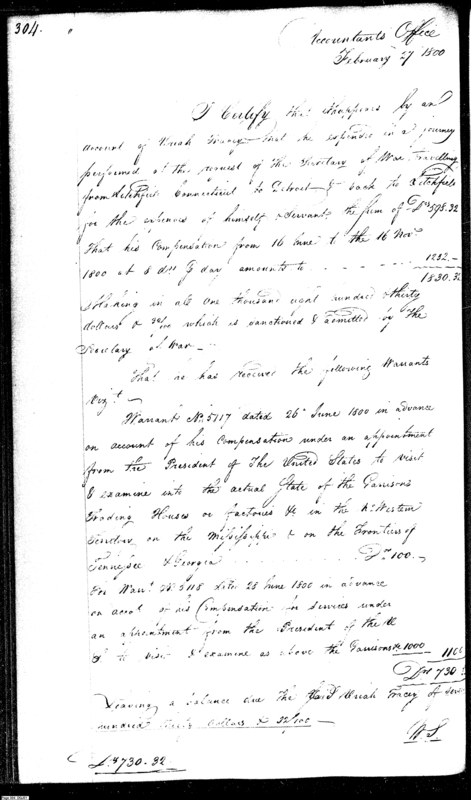 304.
Accountants Office
February 27 1800
I Certify that it appears by an
account of Uriah Tracy that he expended in a journey
performed at the request of the Secretary of War travelling
from Litchfield Connecticut to Detroit & back to Litchfield
for the expences of himself & Servant the sum of Drs 598.32
That his Compensation from 16 June to the 16 Novr
1800 at 8 drs day amounts to 1232
1830.32
Making in all One thousand eight hundred & thirty
dollars & 32/100 which is sanctioned & admitted by the
Secretary of War
That he has received the following Warrants
Vizt
Warrant No. 5117 dated 26 June 1800 in advance
on account of his Compensation under an appointment
from the President of The United States to visit
& examine into the actual State of the Garrisons
Trading Houses or factories &c in the N. Western
on the Mississippi & on the Frontiers of
Tennessee & Georgia Drs 100.
For Warrt No 5118 28 June 1800 in advance
on accot of his Compensation for services under
an appointment from the President of the U
S to visit & examine as above the Garrisons &c 1000
1100
Drs 730.3
Leaving a balance due the said Uriah Tracy of Seven
hundred thirty Dollars & 32/100
W.S
Drs 730.32